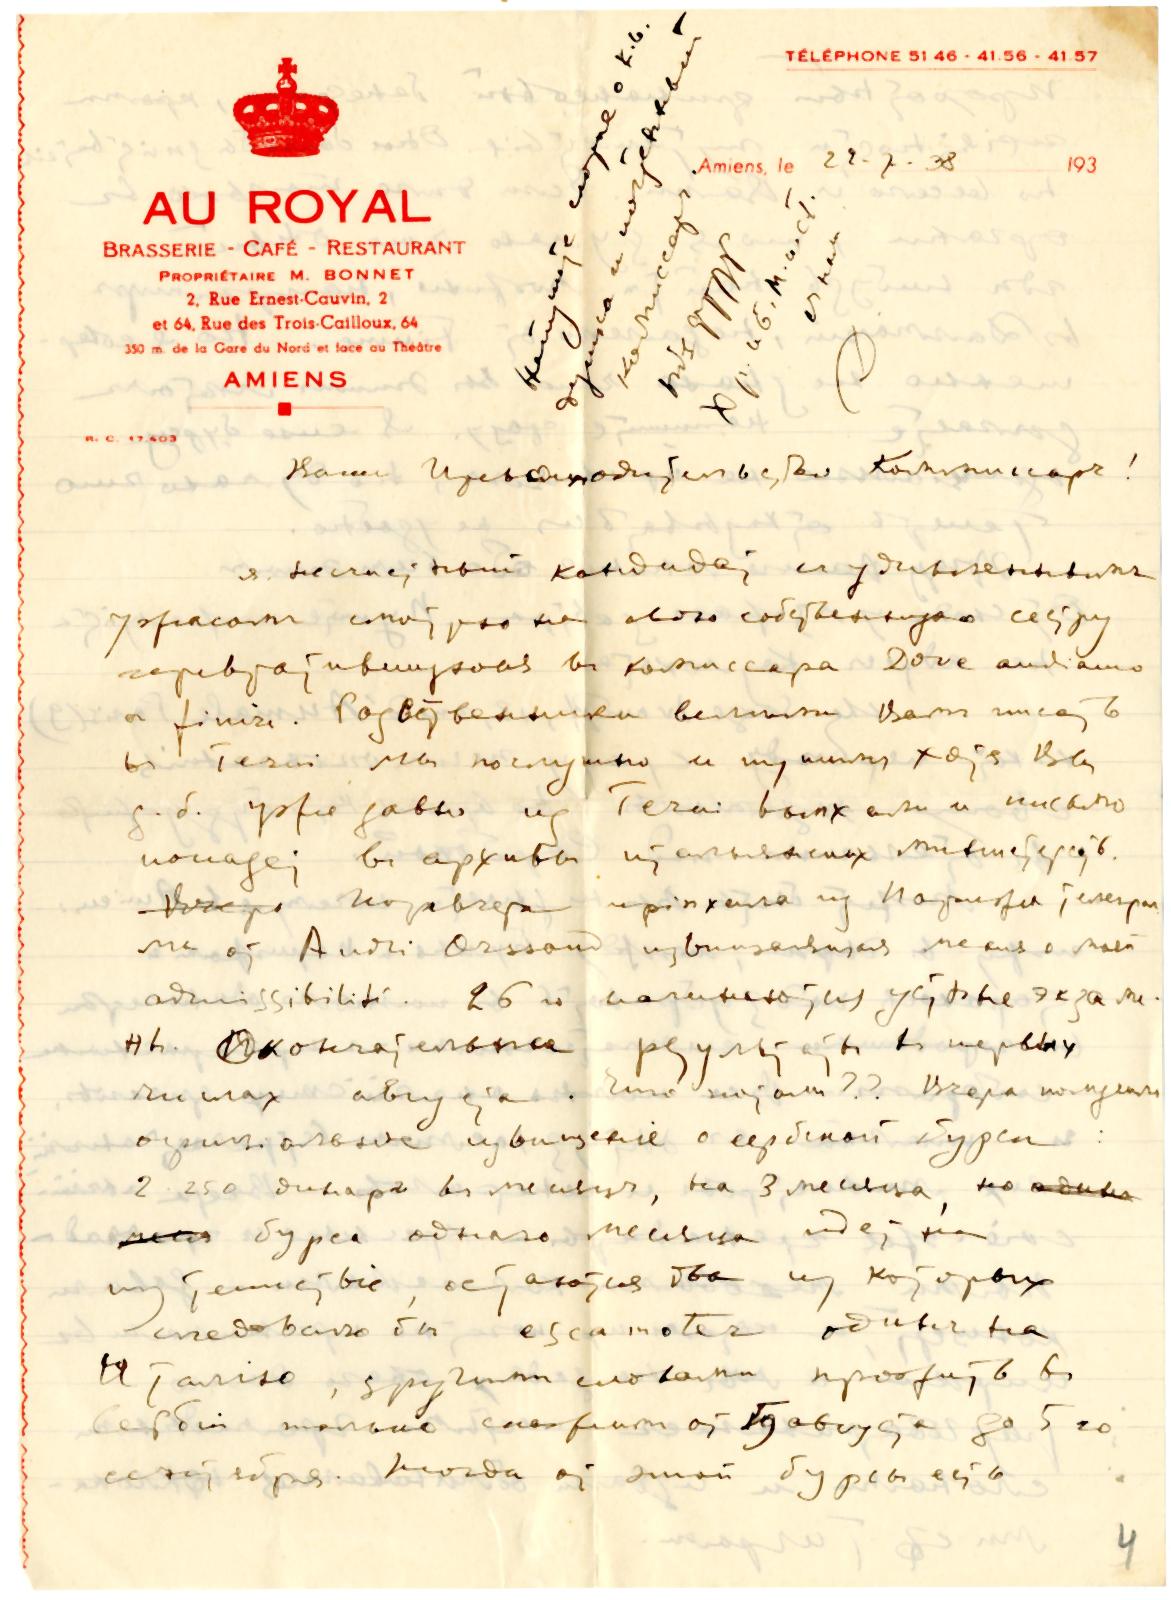 TÉLÉPHONE 51 46 - 41.56 - 41.57
Amiens, le 22-7-38 193
AU ROYAL
BRASSERIE - CAFÉ - RESTAURANT
PROPRIÉTAIRE M. BONNET
2, Rue Ernest-Cauvin, 2
et 64, Rue des Trois-Cailloux, 64
350 m. de la Gare du Nord et face au Théâtre
AMIENS
R. C. 17.603
комиссаръ.
Ваше Превосходительство Коммиссаръ!
я несчастный кандидат с удивленнымъ
ужасомъ смотрю на свою собственную сестру
превратившуюся въ комиссара Dove andiamo
a finire. Родственники велели Вамъ писать
въ мы послушно и пишем хотя Вы
д.б. уже давно из выехали и письмо
попадет въ архивы итальянских министерств.
Позавчера пріехала из Парижа телеграм
ма от André извещающая меня о моей
admissibilité. 26 го начинаются устные экзаме-
ны. Окончательные результаты въ первых
числах августа. Что потом?? Вчера получил
официальное извещеніе о сербской бурсе:
2.250 динаръ въ месяцъ, на 3 месяца, но
бурса одного месяца идет на
путешествіе, остаются два из которых
следовало бы escamoter одинъ на
Италію, другими словами прожить въ
Сербіи только скажем от августа до 5 го
сентября. Тогда от этой бурсы есть
4